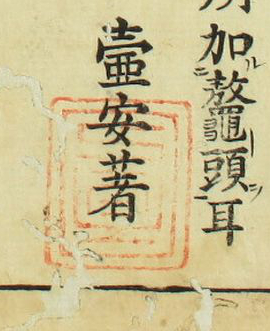 加ル二鼇頭ヲ一耳
壷安著